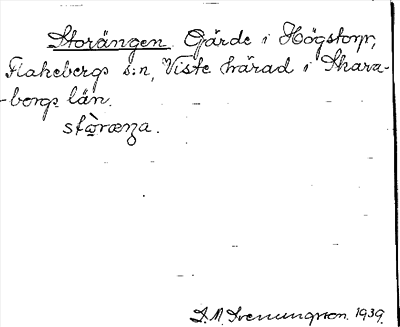 Storängen Gärde i Högstorp,
Flakebergs s:n, Viste härad i Skara-
-borgs län.
stòræŋa.
S. M. Svenungsson. 1939.